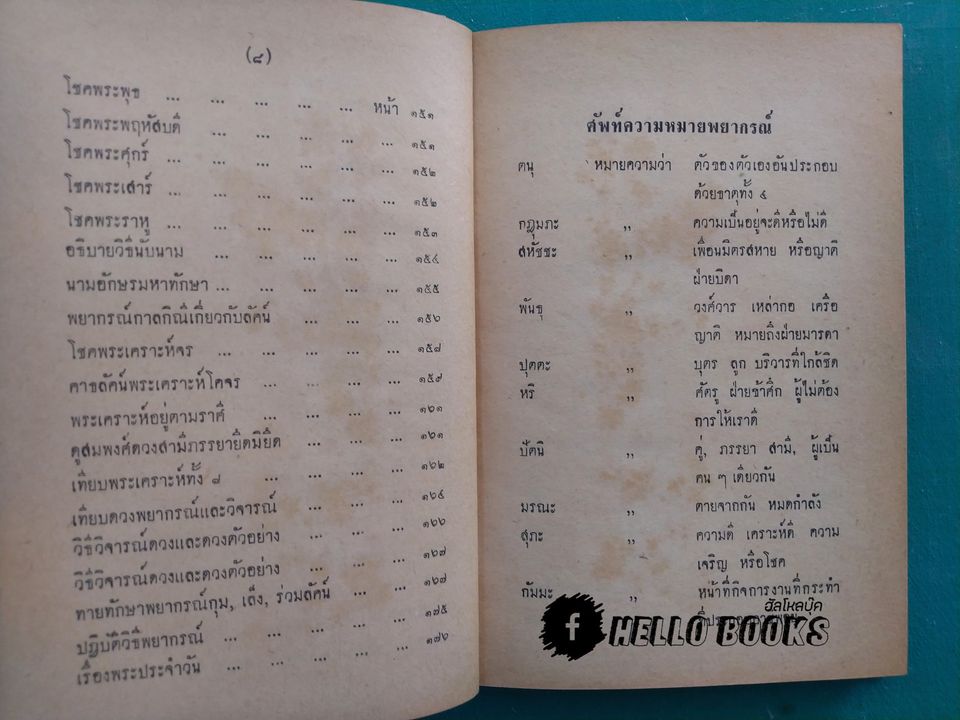 (๘)
โชคพระพุธ ... ... ... ... ... หน้า ๑๕๑
โชคพระพฤหัสบดี ... ... ... ... ๑๕๑
โชคพระศุกร์ ... ... ... ... ... ๑๕๒
โชคพระเสาร์ ... ... ... ... ... ๑๕๒
โชคพระราหู ... ... ... ... ... ๑๕๓
อธิบายวิธีนับนาม ... ... ... ... ๑๕๔
นามอักษรมหาทักษา ... ... ... ... ๑๕๕
พยากรณ์กาลกิณีเกี่ยวกับลัคน์ ... ... ... ๑๕๖
โชคพระเคราะห์จร ... ... ... ... ๑๕๘
คาขลัคน์พระเคราะห์โคจร ... ... ... ๑๕๙
พระเคราะห์อยู่ตามราศี ... ... ... ... ๑๖๑
ดูสมพงศ์ดวงสามีภรรยายืดมิยืด ... ... ... ๑๖๑
เทียบพระเคราะห์ทั้ง ๘ ... ... ... ... ๑๖๒
เทียบดวงพยากรณ์และวิจารณ์ ... ... ... ๑๖๔
วิธีวิจารณ์ดวงและดวงตัวอย่าง ... ... ... ๑๖๖
วิธีวิจารณ์ดวงและดวงตัวอย่าง ... ... ... ๑๖๗
ทายทักษาพยากรณ์กุม, เล็ง, ร่วมลัคน์ ... ... ๑๖๗
ปฏิบัติวิธีพยากรณ์ ... ... ... ... ... ๑๗๕
เรื่องพระประจำวัน ... ... ... ... ... ๑๗๖
ศัพท์ความหมายพยากรณ์
ตนุ หมายความว่า ตัวของตัวเองอันประกอบ
ด้วยธาตุทั้ง ๔
กฎุมภะ ,, ความเป็นอยู่จะดีหรือไม่ดี
สหัชชะ ,, เพื่อนมิตรสหาย หรือญาติ
ฝ่ายบิดา
พันธุ ,, วงศ์วาร เหล่ากอ เครือ
ญาติ หมายถึงฝ่ายมารดา
ปุตตะ ,, บุตร ลูก บริวารที่ใกล้ชิด
หริ ,, ศัตรู ฝ่ายข้าศึก ผู้ไม่ต้อง
การให้เราดี
ปัตนิ ,, คู่, ภรรยา สามี, ผู้เป็น
คน ๆ เดียวกัน
มรณะ ,, ตายจากกัน หมดกำลัง
สุภะ ,, ความดี เคราะห์ดี ความ
เจริญ หรือโชค
กัมมะ ,, หน้าที่กิจการงานที่กระทำ
ฮัลโหลบุ๊ค
f HELLO BOOKS